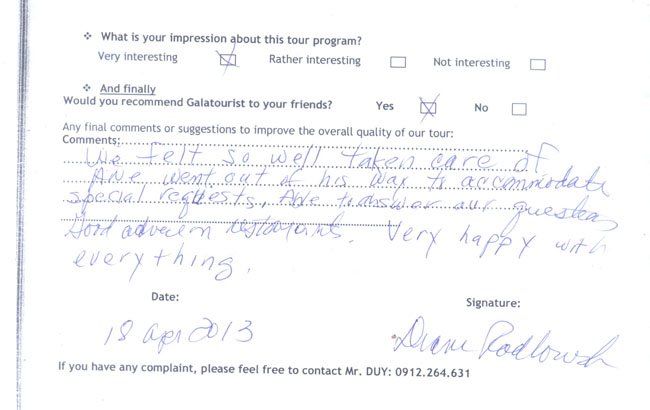 ❖ What is your impression about this tour program?
Very interesting Rather interesting Not interesting
❖ And finally
Would you recommend Galatourist to your friends? Yes No
Any final comments or suggestions to improve the overall quality of our tour:
Comments:
We felt so well taken care of
went out of his way to accommodate
special requests, Able to answer our
Good advice on restaurants. Very happy with
everything.
Date: Signature:
18 apr 2013 Diane
If you have any complaint, please feel free to contact Mr. DUY: 0912.264.631